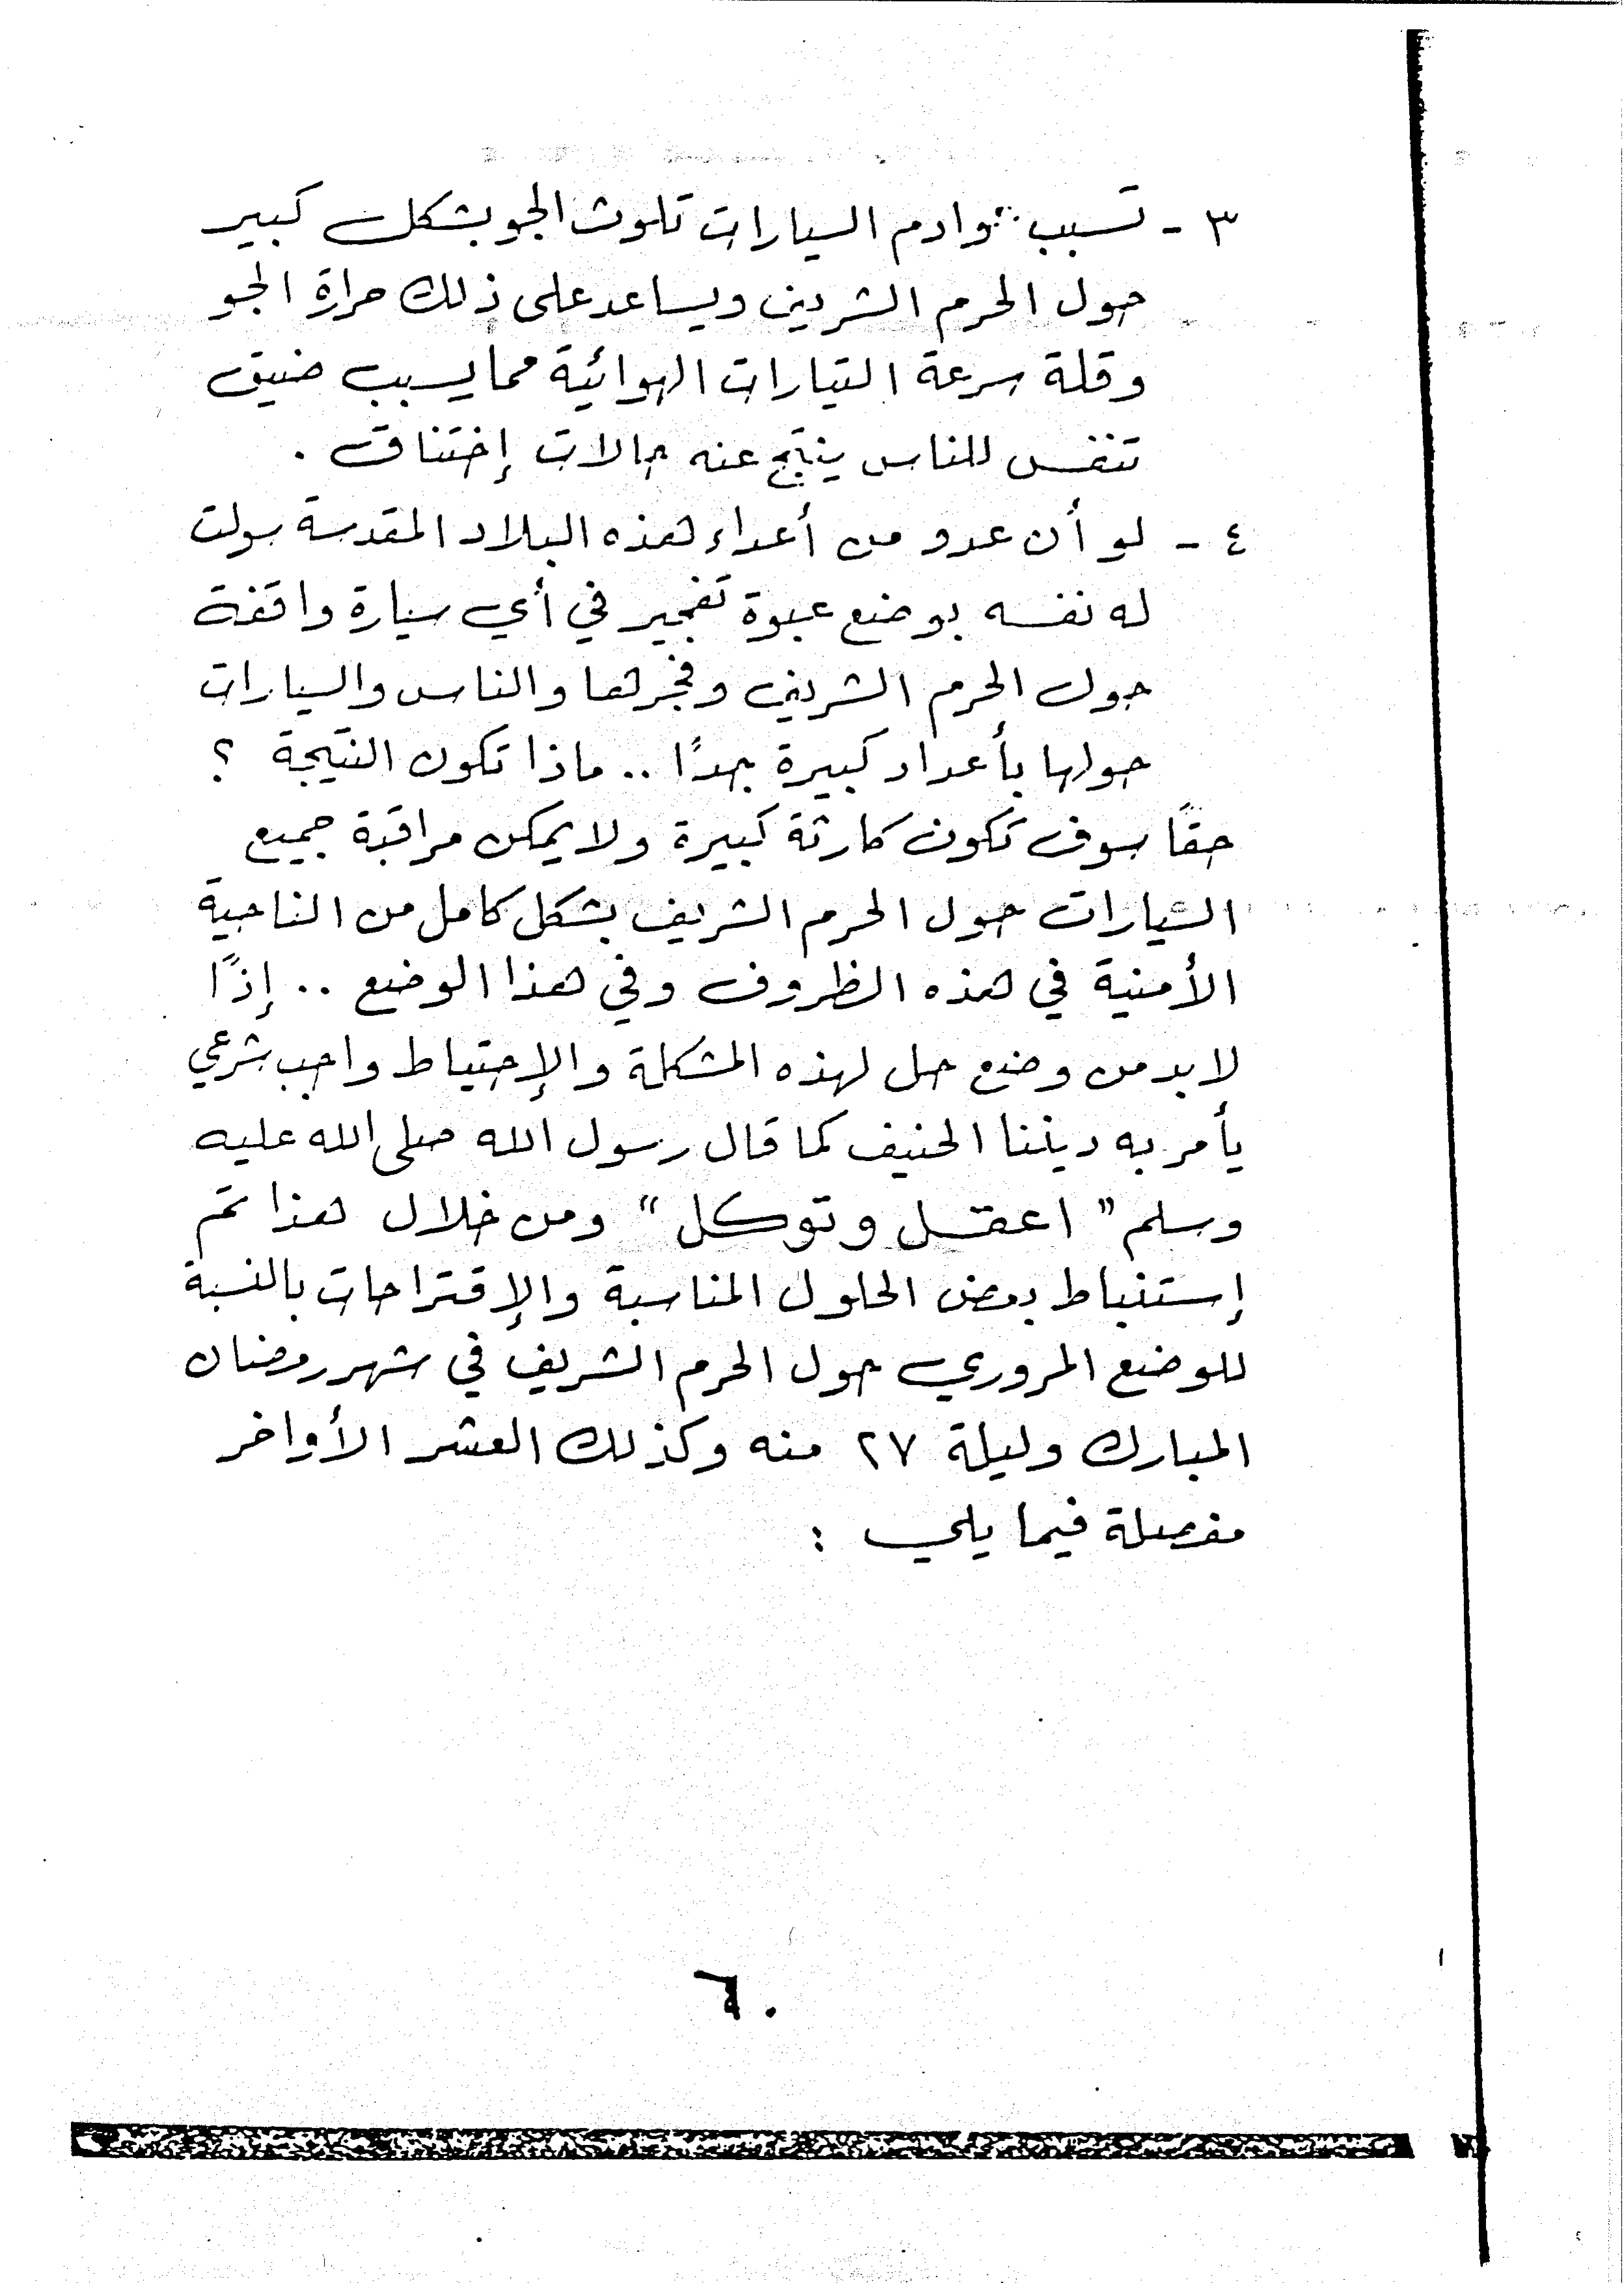 ٣ - تسبب عوادم السيارات تلوث الجو بشكل كبير
حول الحرم الشريف ويساعد على ذلك حرارة الجو
وقلة سرعة التيارات الهوائية مما يسبب ضيق
تنفس للناس ينتج عنه حالات إختناق .
٤ - لو أن عدو من أعداء هذه البلاد المقدسة سولت
له نفسه بوضع عبوة تفجير في أي سيارة واقفة
حول الحرم الشريف وفجرها والناس والسيارات
حولها بأعداد كبيرة جدًا .. ماذا تكون النتيجة ؟
حقًا سوف تكون كارثة كبيرة ولا يمكن مراقبة جميع
السيارات حول الحرم الشريف بشكل كامل من الناحية
الأمنية في هذه الظروف وفي هذا الوضع .. إذًا
لابد من وضع حل لهذه المشكلة والإحتياط واجب شرعي
يأمر به ديننا الحنيف كما قال رسول الله صلى الله عليه
وسلم " اعقل وتوكل " ومن خلال هذا تم
إستنباط بعض الحلول المناسبة والإقتراحات بالنسبة
للوضع المروري حول الحرم الشريف في شهر رمضان
المبارك وليلة ٢٧ منه وكذلك العشر الأواخر
مفصلة فيما يلي :